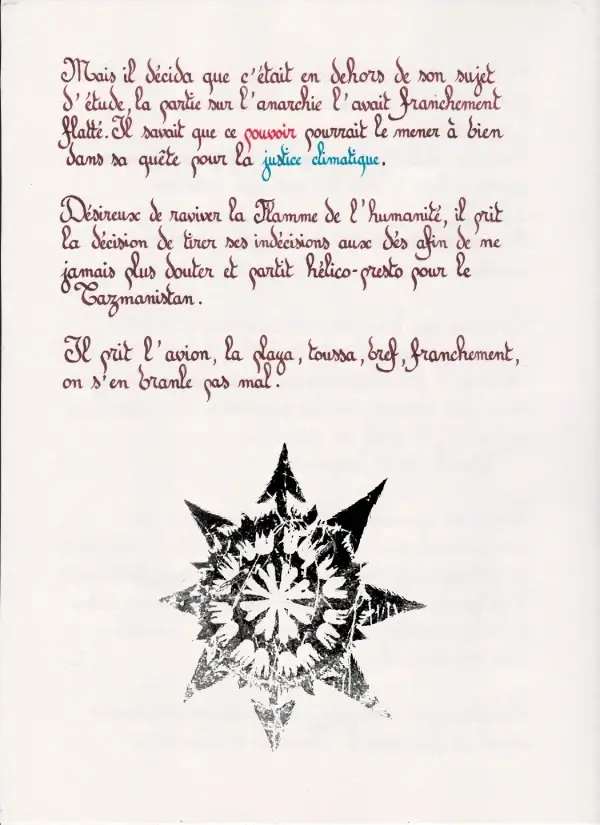 Mais il décida que c'était en dehors de son sujet
d'étude, la partie sur l'anarchie l'avait franchement
flatté. Il savait que ce pouvoir pourrait le mener à bien
dans sa quête pour la justice climatique.
Désireux de raviver la Flamme de l'humanité, il prit
la décision de tirer ses indécisions aux dés afin de ne
jamais plus douter et partit hélico-presto pour le
Tazmanistan.
Il prit l'avion, la playa, toussa, bref, franchement,
on s'en branle pas mal.